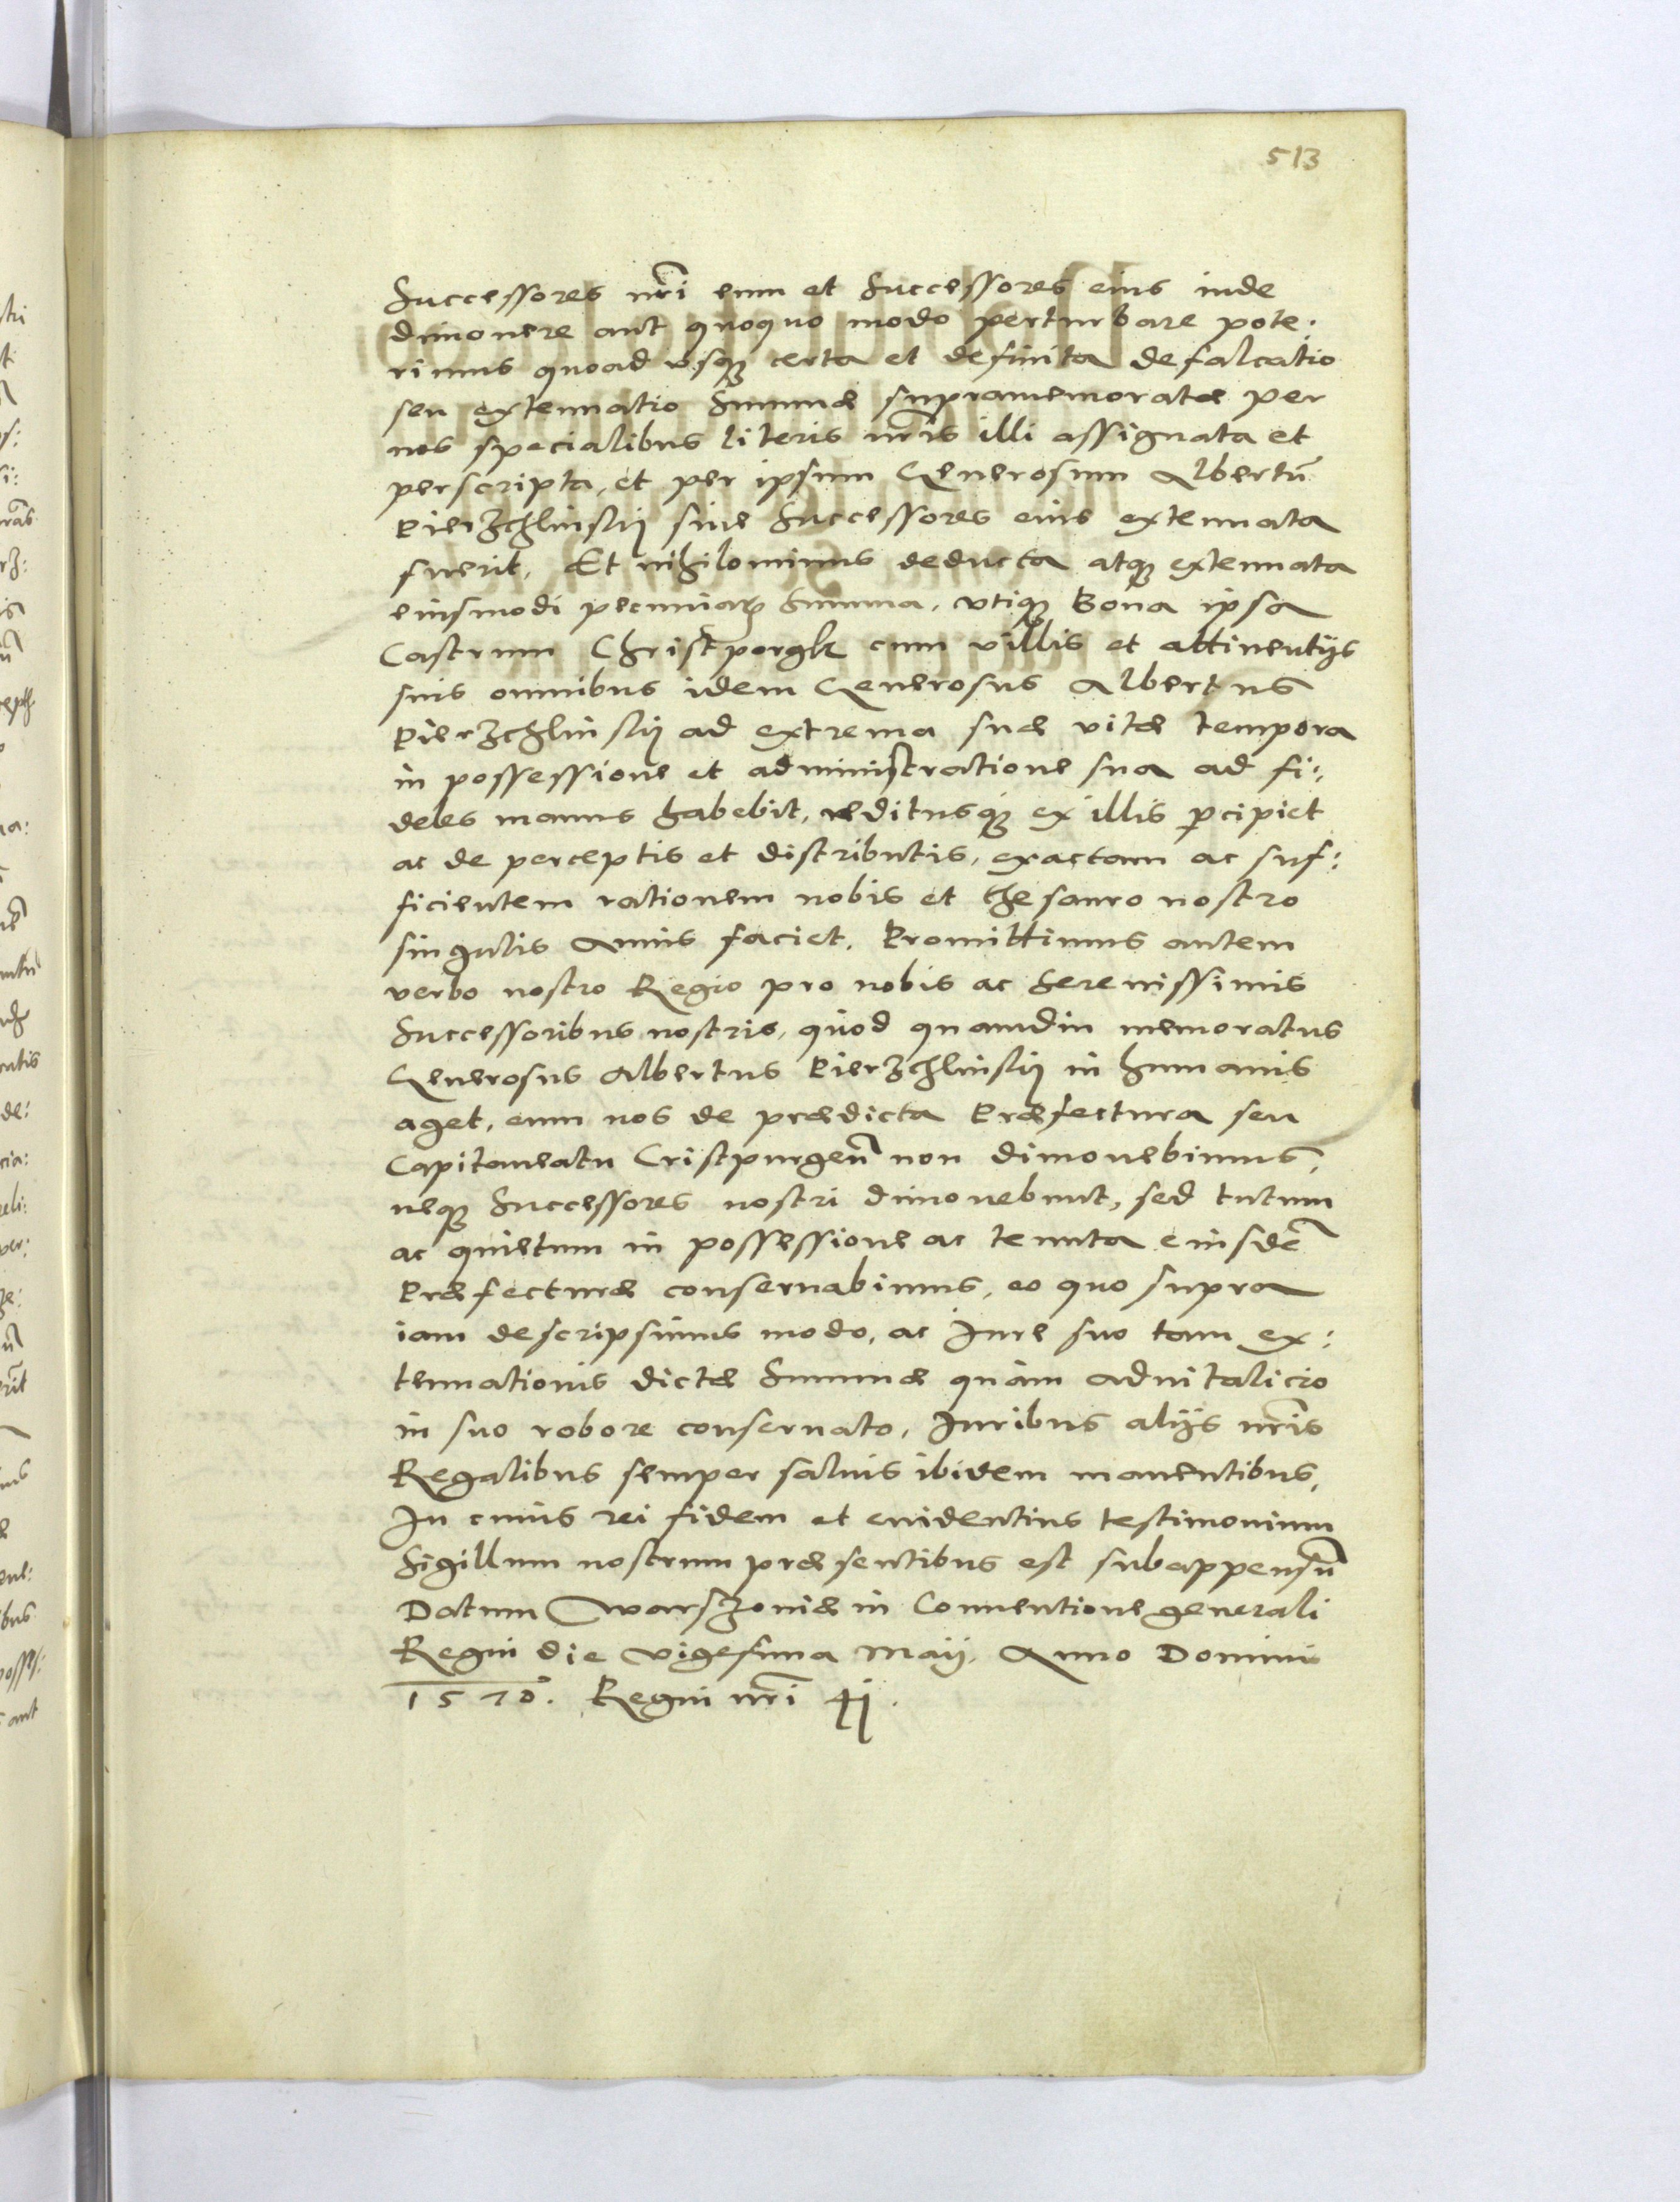 513
Successores nr̃i eum et Successores eius inde
dimouere aut quoquo modo perturbare pote:
rimus quoad vsq3 certa et definita defalcatio
seu extenuatio Summæ supramemoratæ per
nos specialibus literis nr̃is illi assignata et
perscripta, et per ipsum Generosum Albertũ
Pierzchlinskij siue Successores eius extenuata
fuerit, Et nihilominus deducta atq3 extenuata
eiusmodi pecuniarꝝ Summa, vtiq3 Bona ipsa
Castrum Christporgk cum villis et attinentijs
suis omnibus idem Generosus Albertus
Pierzchlinskij ad extrema suæ vitæ tempora
in possessione et administratione sua ad fi:
deles manus habebit, reditusq3 ex illis ꝑcipiet
ac de perceptis et distributis, exactam ac suf:
ficientem rationem nobis et thesauro nostro
singulis Annis faciet. Promittimus autem
verbo nostro Regio pro nobis ac Serenissimis
Successoribus nostris, quod quamdiu memoratus
Generosus Albertus Pierzchlinskij in humanis
aget, eum nos de prædicta Præfectura seu
Capitaneatu Cristpurgeñ non dimouebimus,
neq3 Successores nostri dimouebunt, sed tutum
ac quietum in possessione ac tenuta eiusdẽ
Præfecturæ conseruabimus, eo quo supra
iam descripsimus modo, ac Jure suo tam ex:
tenuationis dictæ Summæ quàm aduitalicio
in suo robore conseruato, Juribus alijs nr̃is
Regalibus semper saluis ibidem manentibus,
In cuius rei fidem et euidentius testimonium
Sigillum nostrum præsentibus est subappensũ
Datum Warszouiæ in Conuentione generali
Regni die vigesima Maij. Anno Domini
Regni nr̃i